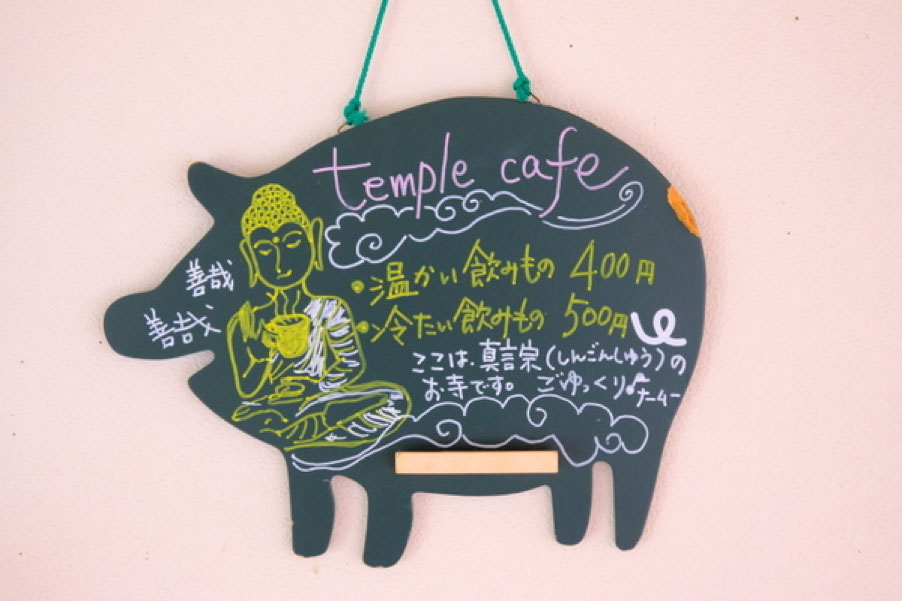 temple cafe
善哉
善哉
・温かい飲みもの 400円
・冷たい飲みもの 500円
ここは、真言宗(しんごんしゅう)の
お寺です。ごゆっくり♪ナームー